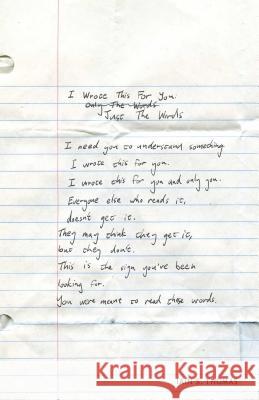 I Wrote This For You.
Only The Words
Just The Words
I need you to understand something.
I wrote this for you.
I wrote this for you and only you.
Everyone else who reads it,
doesn't get it.
They may think they get it,
but they don't.
This is the sign you've been
looking for.
You were meant to read these words.
IAIN S. THOMAS